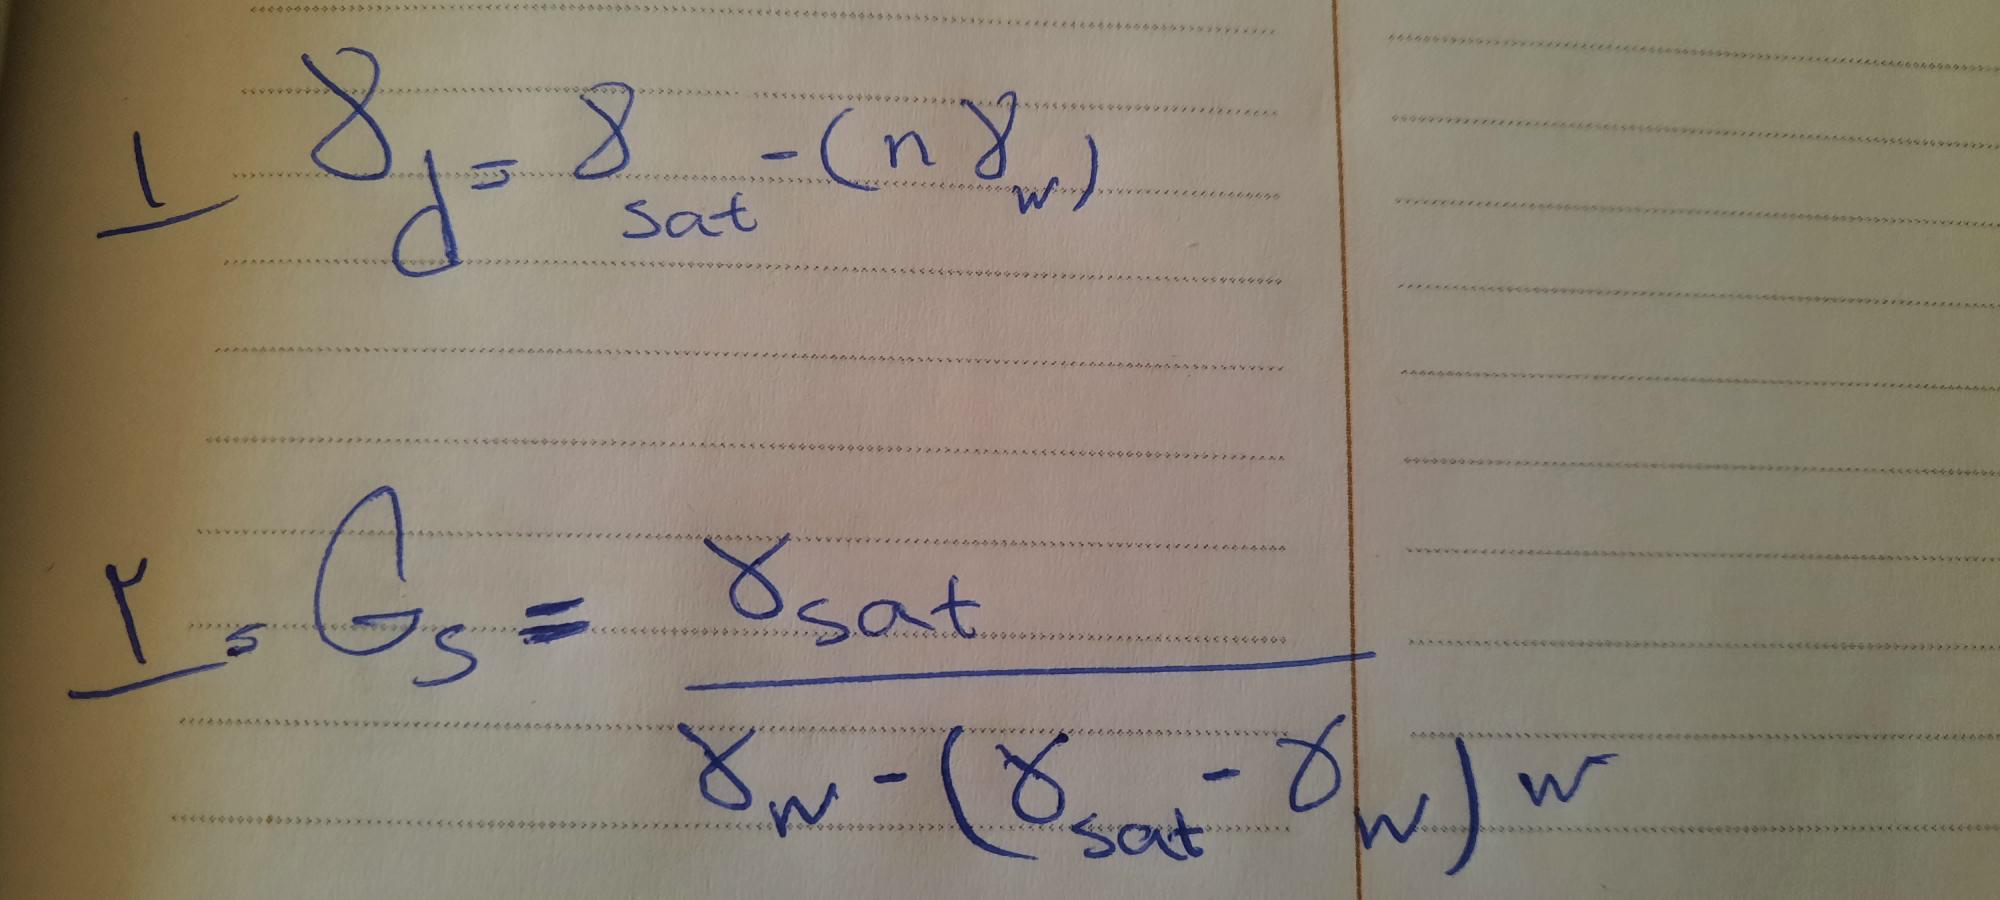 ۱ γd = γsat - (n γw)
۲ - Gs = γsat / γw - (γsat - γw) w